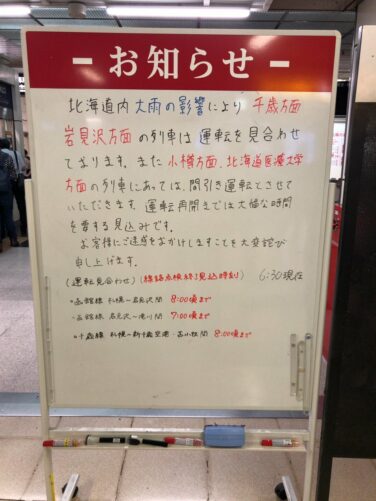 - お知らせ -
北海道内 大雨の影響により 千歳方面
岩見沢方面 の列車は 運転を見合わせ
ております。また 小樽方面、北海道医療大学
方面の列車にあっては、間引き運転とさせて
いただきます。運転再開までは大幅な時間
を要する見込みです。
お客様にご迷惑をおかけしますことを大変詫び
申し上げます。
(運転見合わせ) (線路点検終了見込時刻) 6:30現在
・函館線 札幌〜岩見沢間 8:00頃まで
・函館線 岩見沢〜滝川間 7:00頃まで
・千歳線 札幌〜新千歳空港・苫小牧間 8:00頃まで